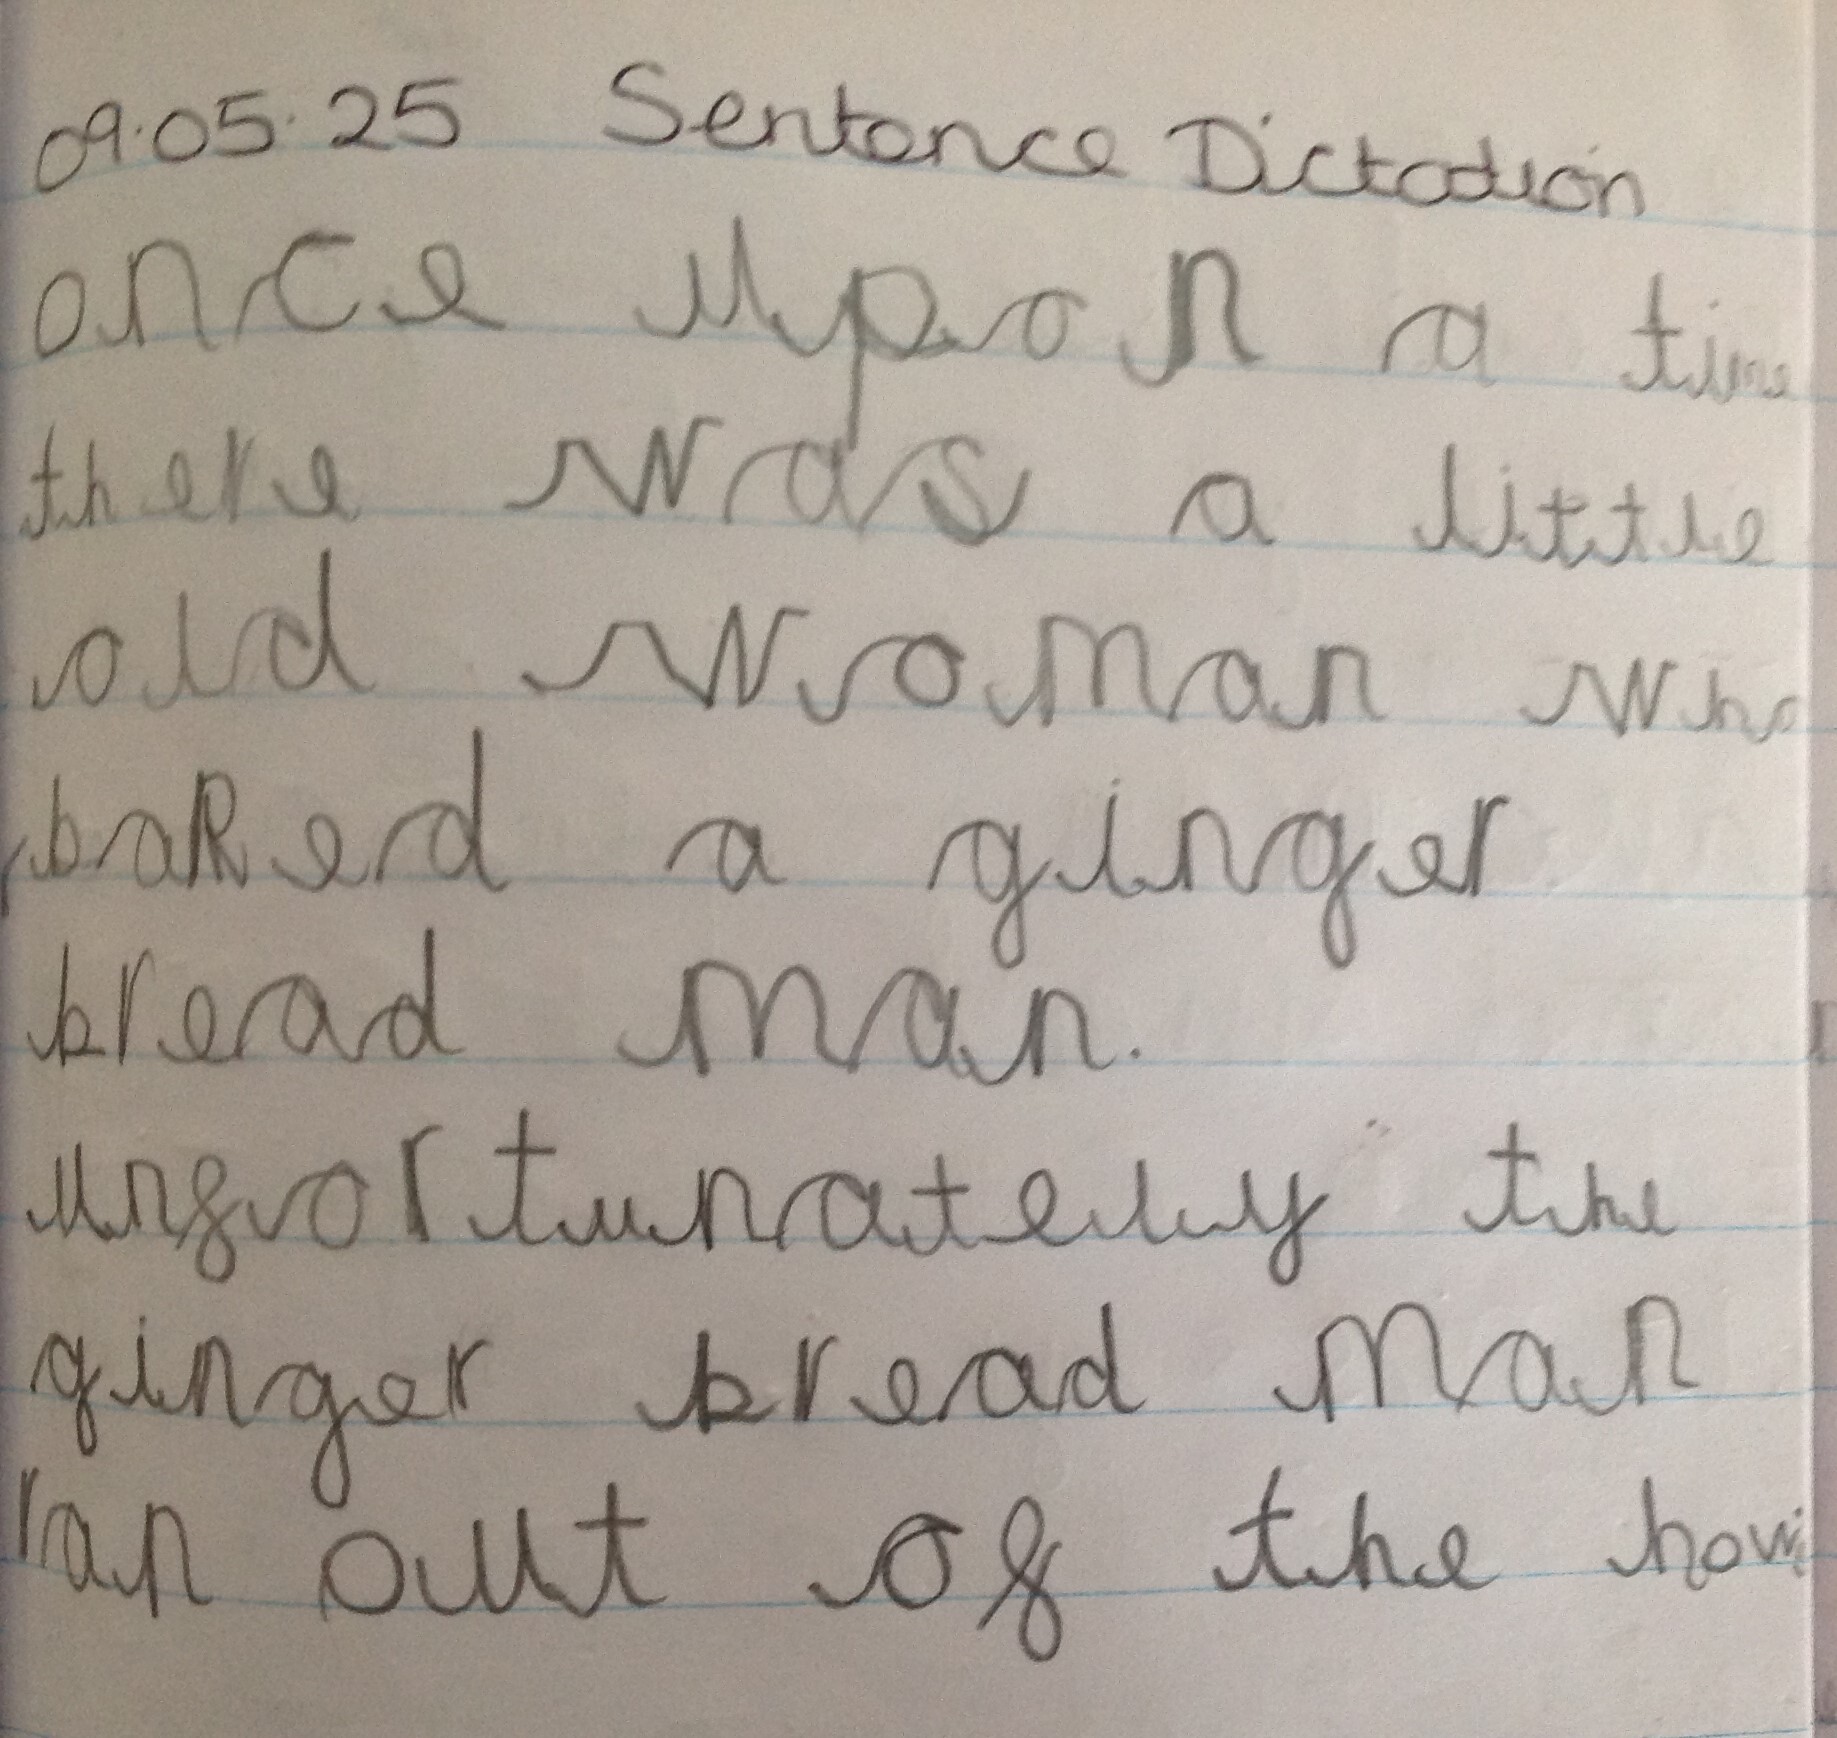 09.05.25 Sentence Dictation
once upon a time
there was a little
old woman who
baked a ginger
bread man.
unfortunately the
ginger bread man
ran out of the